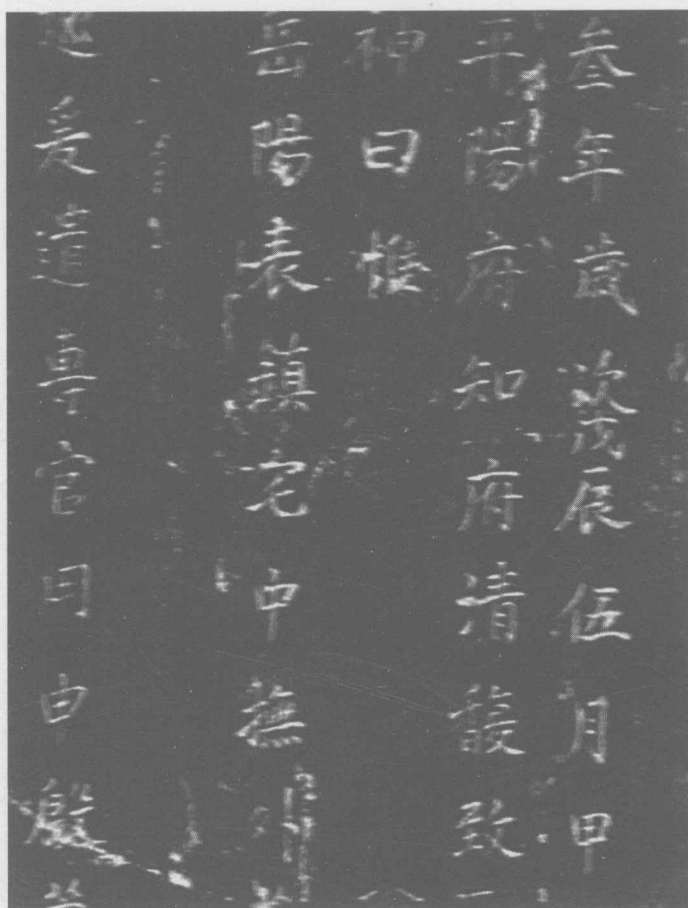 叁年歲次戊辰伍月甲
平陽府知府清馥致
神曰惟
岳陽表鎮宅中撫
爰遣專官用申殷